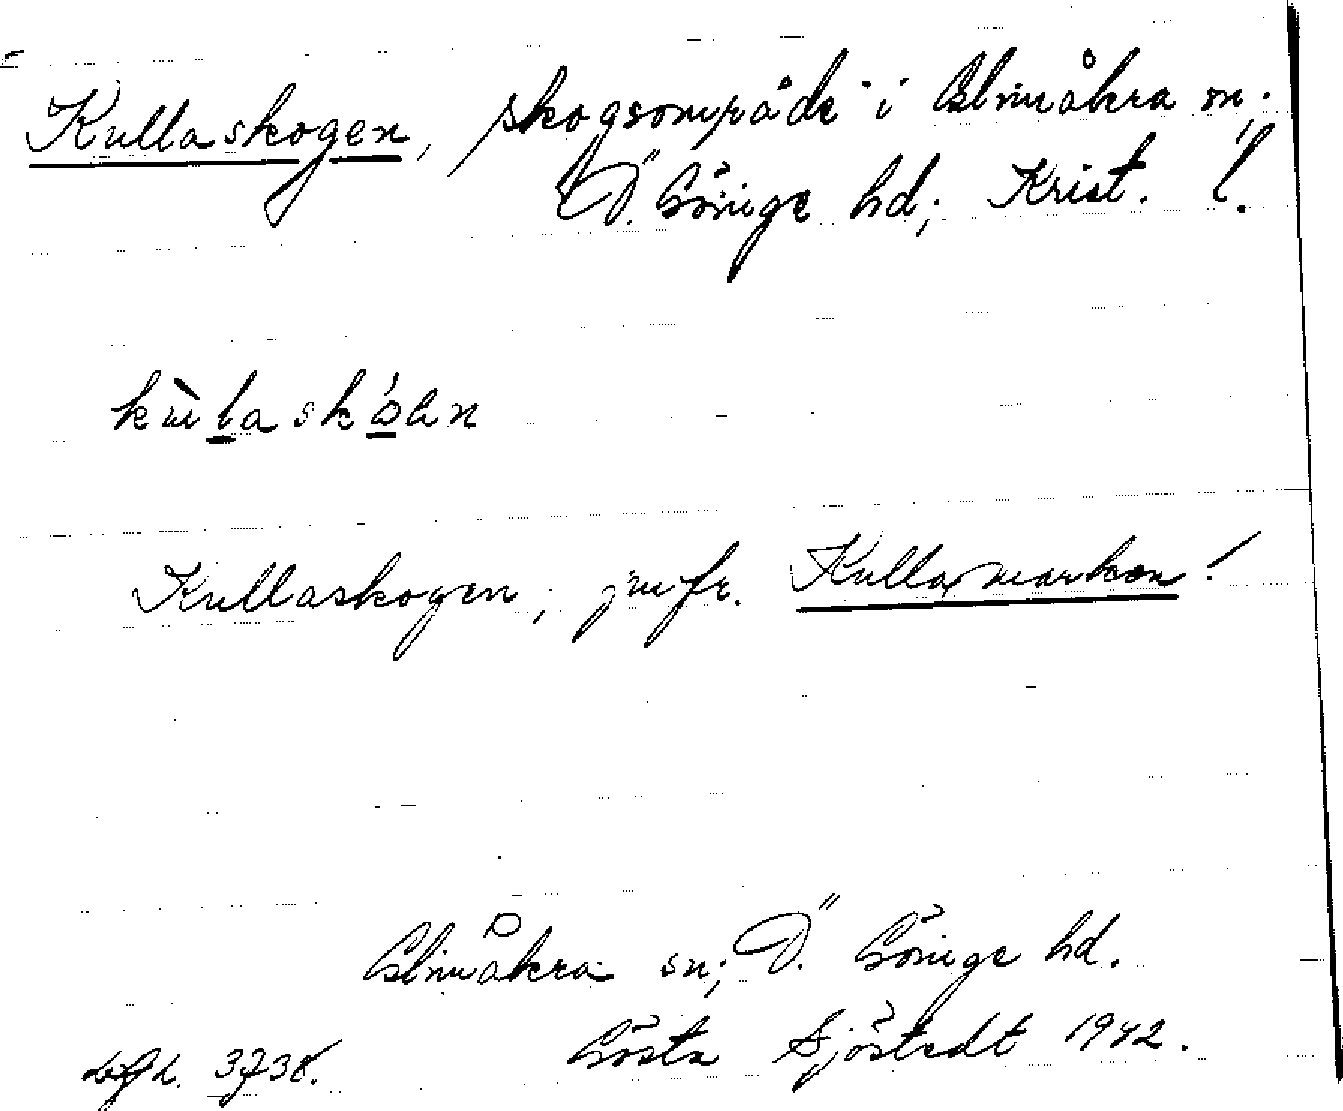 Kullaskogen, skogsområde i Glimåkra sn,
Ö. Göinge hd; Krist. l.
Kullaskogen; jmfr. Kullamarken!
Glimåkra sn; Ö. Göinge hd.
Gösta Sjöstedt 1942.